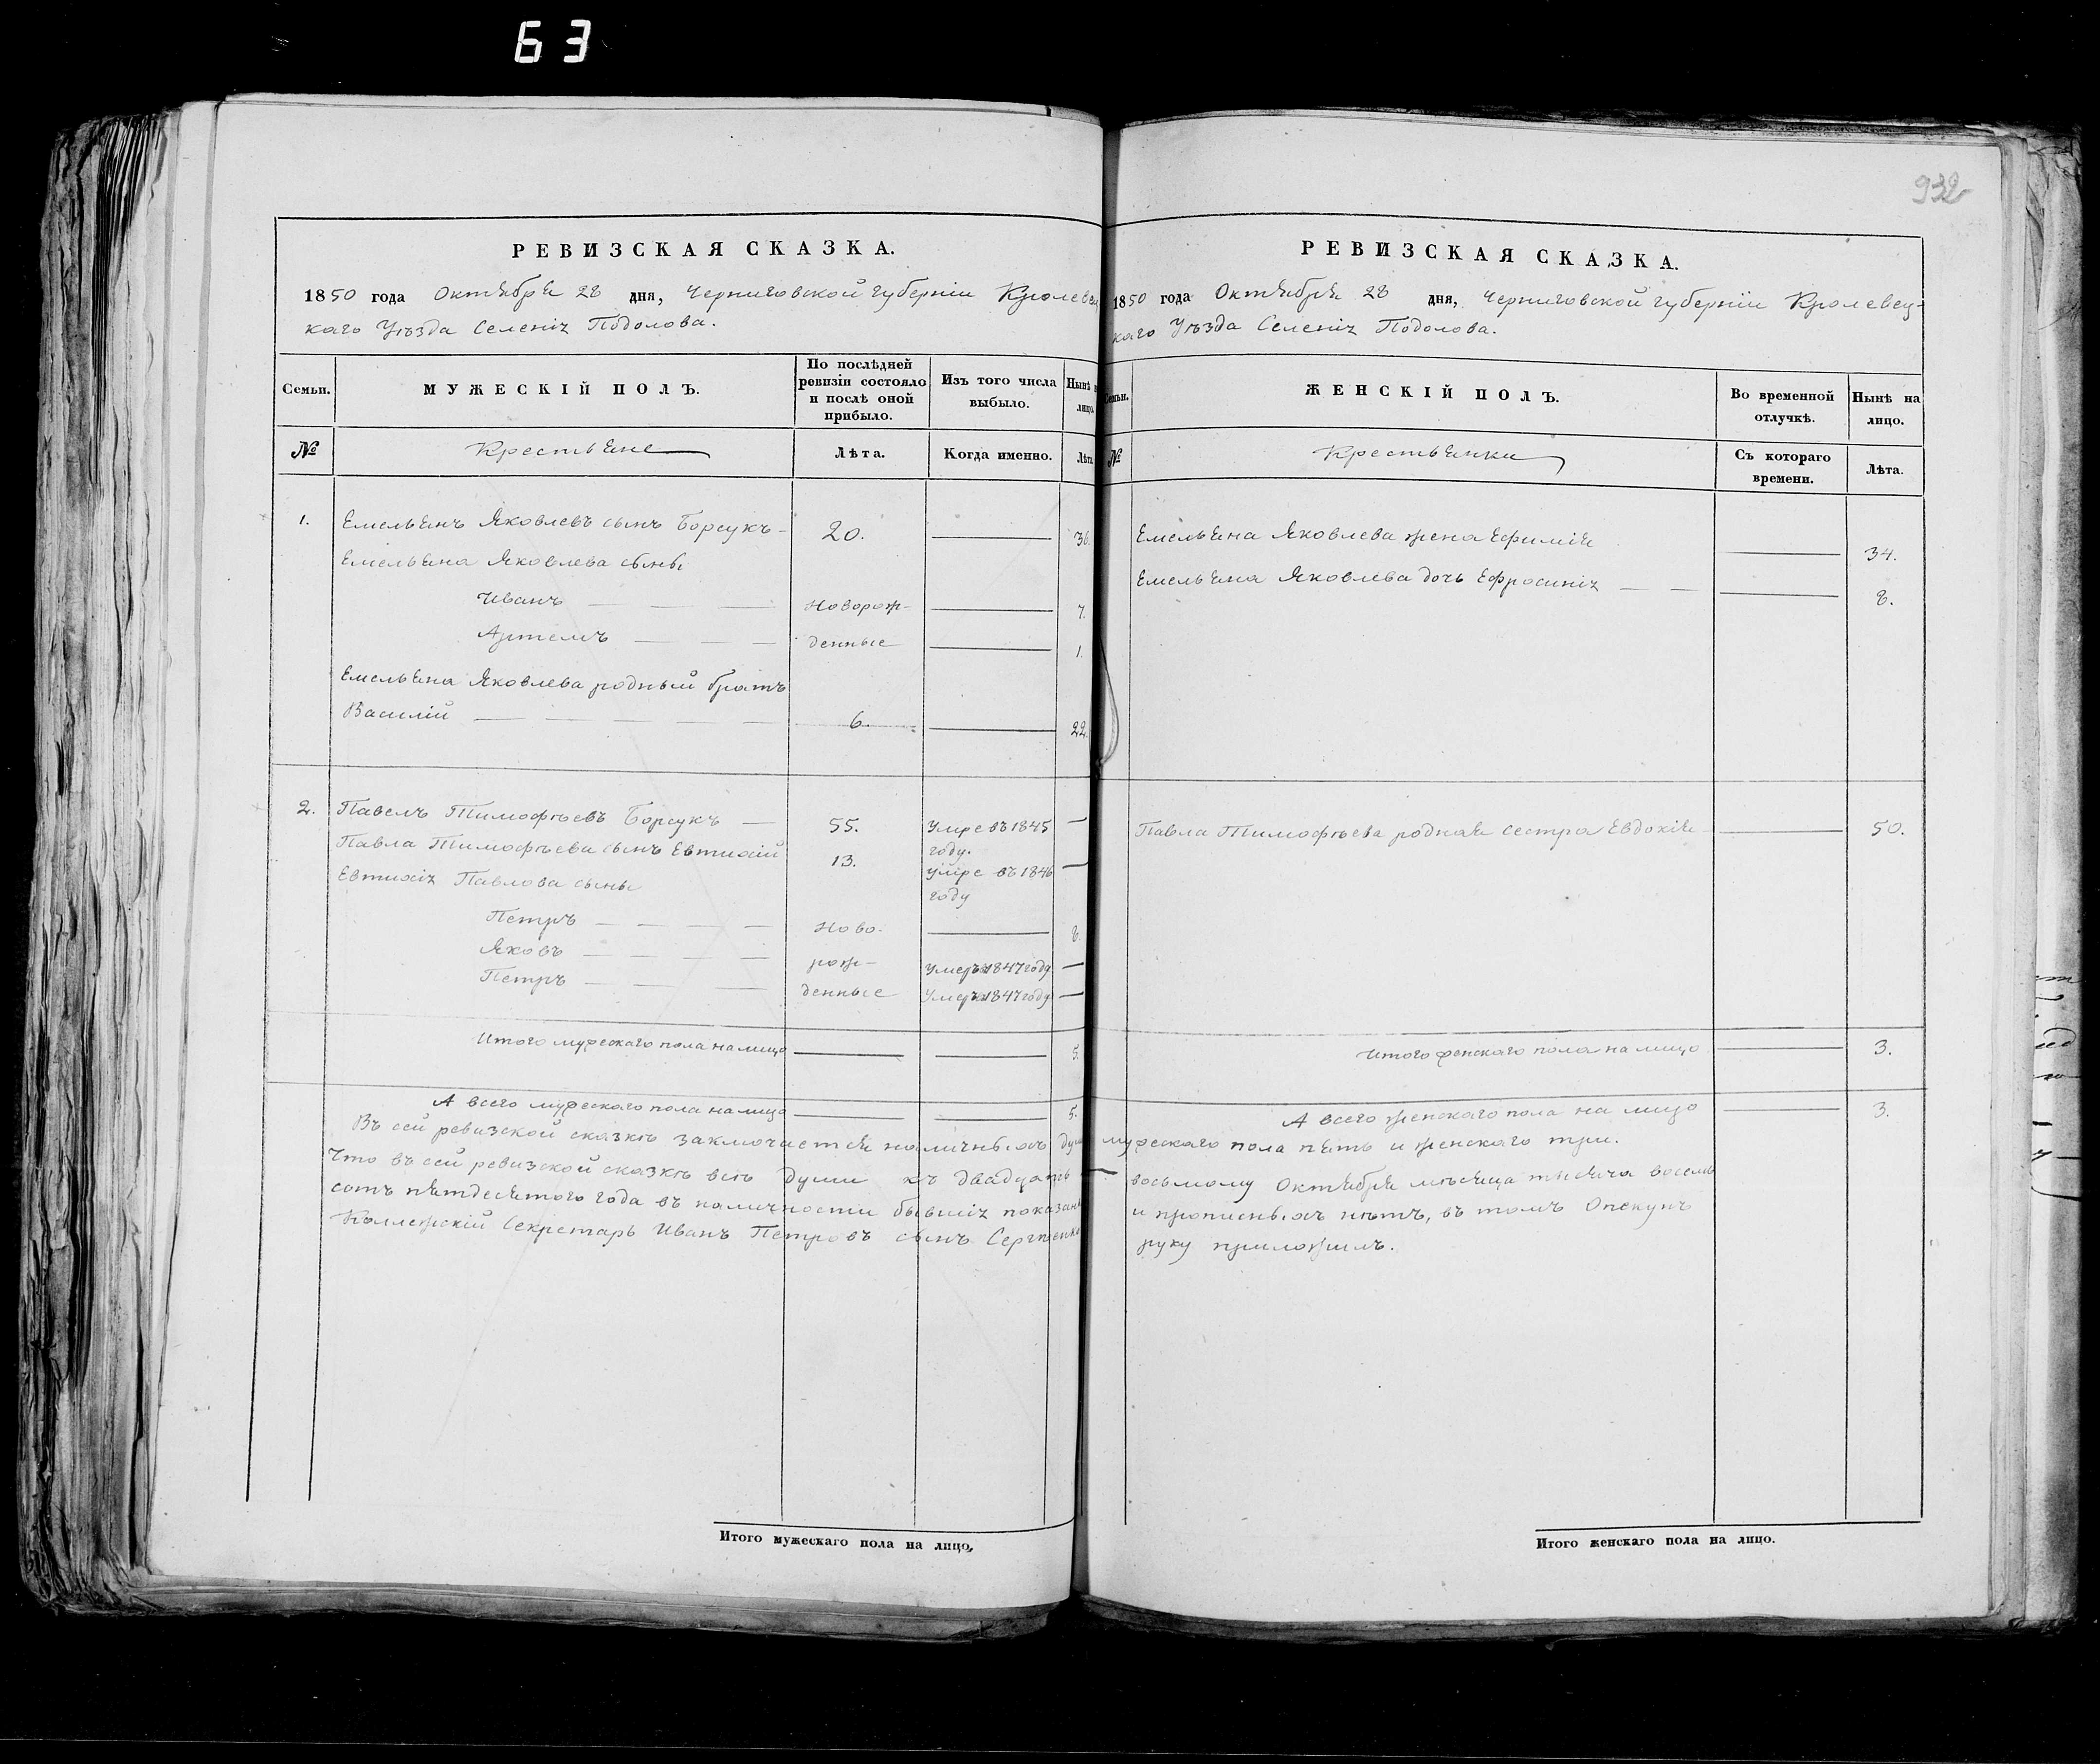 63
932
РЕВИЗСКАЯ СКАЗКА.
1850 года Октября 28 дня, Черниговской губернiи Кролевец
каго Уѣзда Селенiя Подолова.
Семьи. МУЖЕСКIЙ ПОЛЪ. По послѣдней ревизiи состояло и послѣ оной прибыло. Изъ того числа выбыло. Нынѣ на лицо.
№ Крестьяне Лѣта. Когда именно. Лѣта
1. Емельянъ Яковлевъ сынъ Борсукъ 20. 36.
Емельяна Яковлева сыны
Иванъ Новорож- 7.
Артемъ денные 1.
Емельяна Яковлева родный братъ
Василiй 6. 22.
2. Павелъ Тимофѣевъ Борсукъ 55. Умре въ 1845 году.
Павла Тимофѣева сынъ Евтихiй 13. умре въ 1846 году
Евтихiя Павлова сыны
Петръ Ново- 8.
Яковъ рож- Умеръ 1847 году
Петръ денные Умеръ 1847 году
Итого мужескаго пола на лицо 5.
А всего мужескаго пола на лицо 5.
Въ сей ревизской сказкѣ заключается наличныхъ душ
Что въ сей ревизской сказкѣ всѣ души къ двадцать
сотъ пятдесятого года въ наличности бывшiя показан
Коллежскiй Секретарь Иванъ Петровъ сынъ Сергѣенко
Итого мужескаго пола на лицо,
РЕВИЗСКАЯ СКАЗКА.
1850 года Октября 28 дня, Черниговской губернiи Кролевец-
каго Уѣзда Селенiя Подолова.
Семьи. ЖЕНСКIЙ ПОЛЪ. Во временной отлучкѣ. Нынѣ на лицо.
№ Крестьянки Съ котораго времени. Лѣта.
Емельяна Яковлева жена Ефимiя 34.
Емельяна Яковлева дочь Ефросинiя 8.
Павла Тимофѣева родная сестра Евдокiя 50.
Итого женскаго пола на лицо 3.
А всего женскаго пола на лицо 3.
мужескаго пола пять и женскаго три.
восьмому Октября мѣсяца тысяча восемь
и прописныхъ нѣтъ, въ томъ Опекунъ
руку приложилъ.
Итого женскаго пола на лицо.